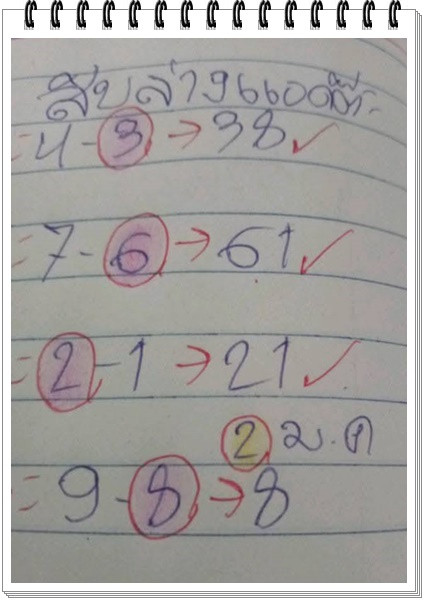 สิบล่าง
4-3→38✓
7-6→61✓
2-1→21✓
2 ม.ค
9-8→8